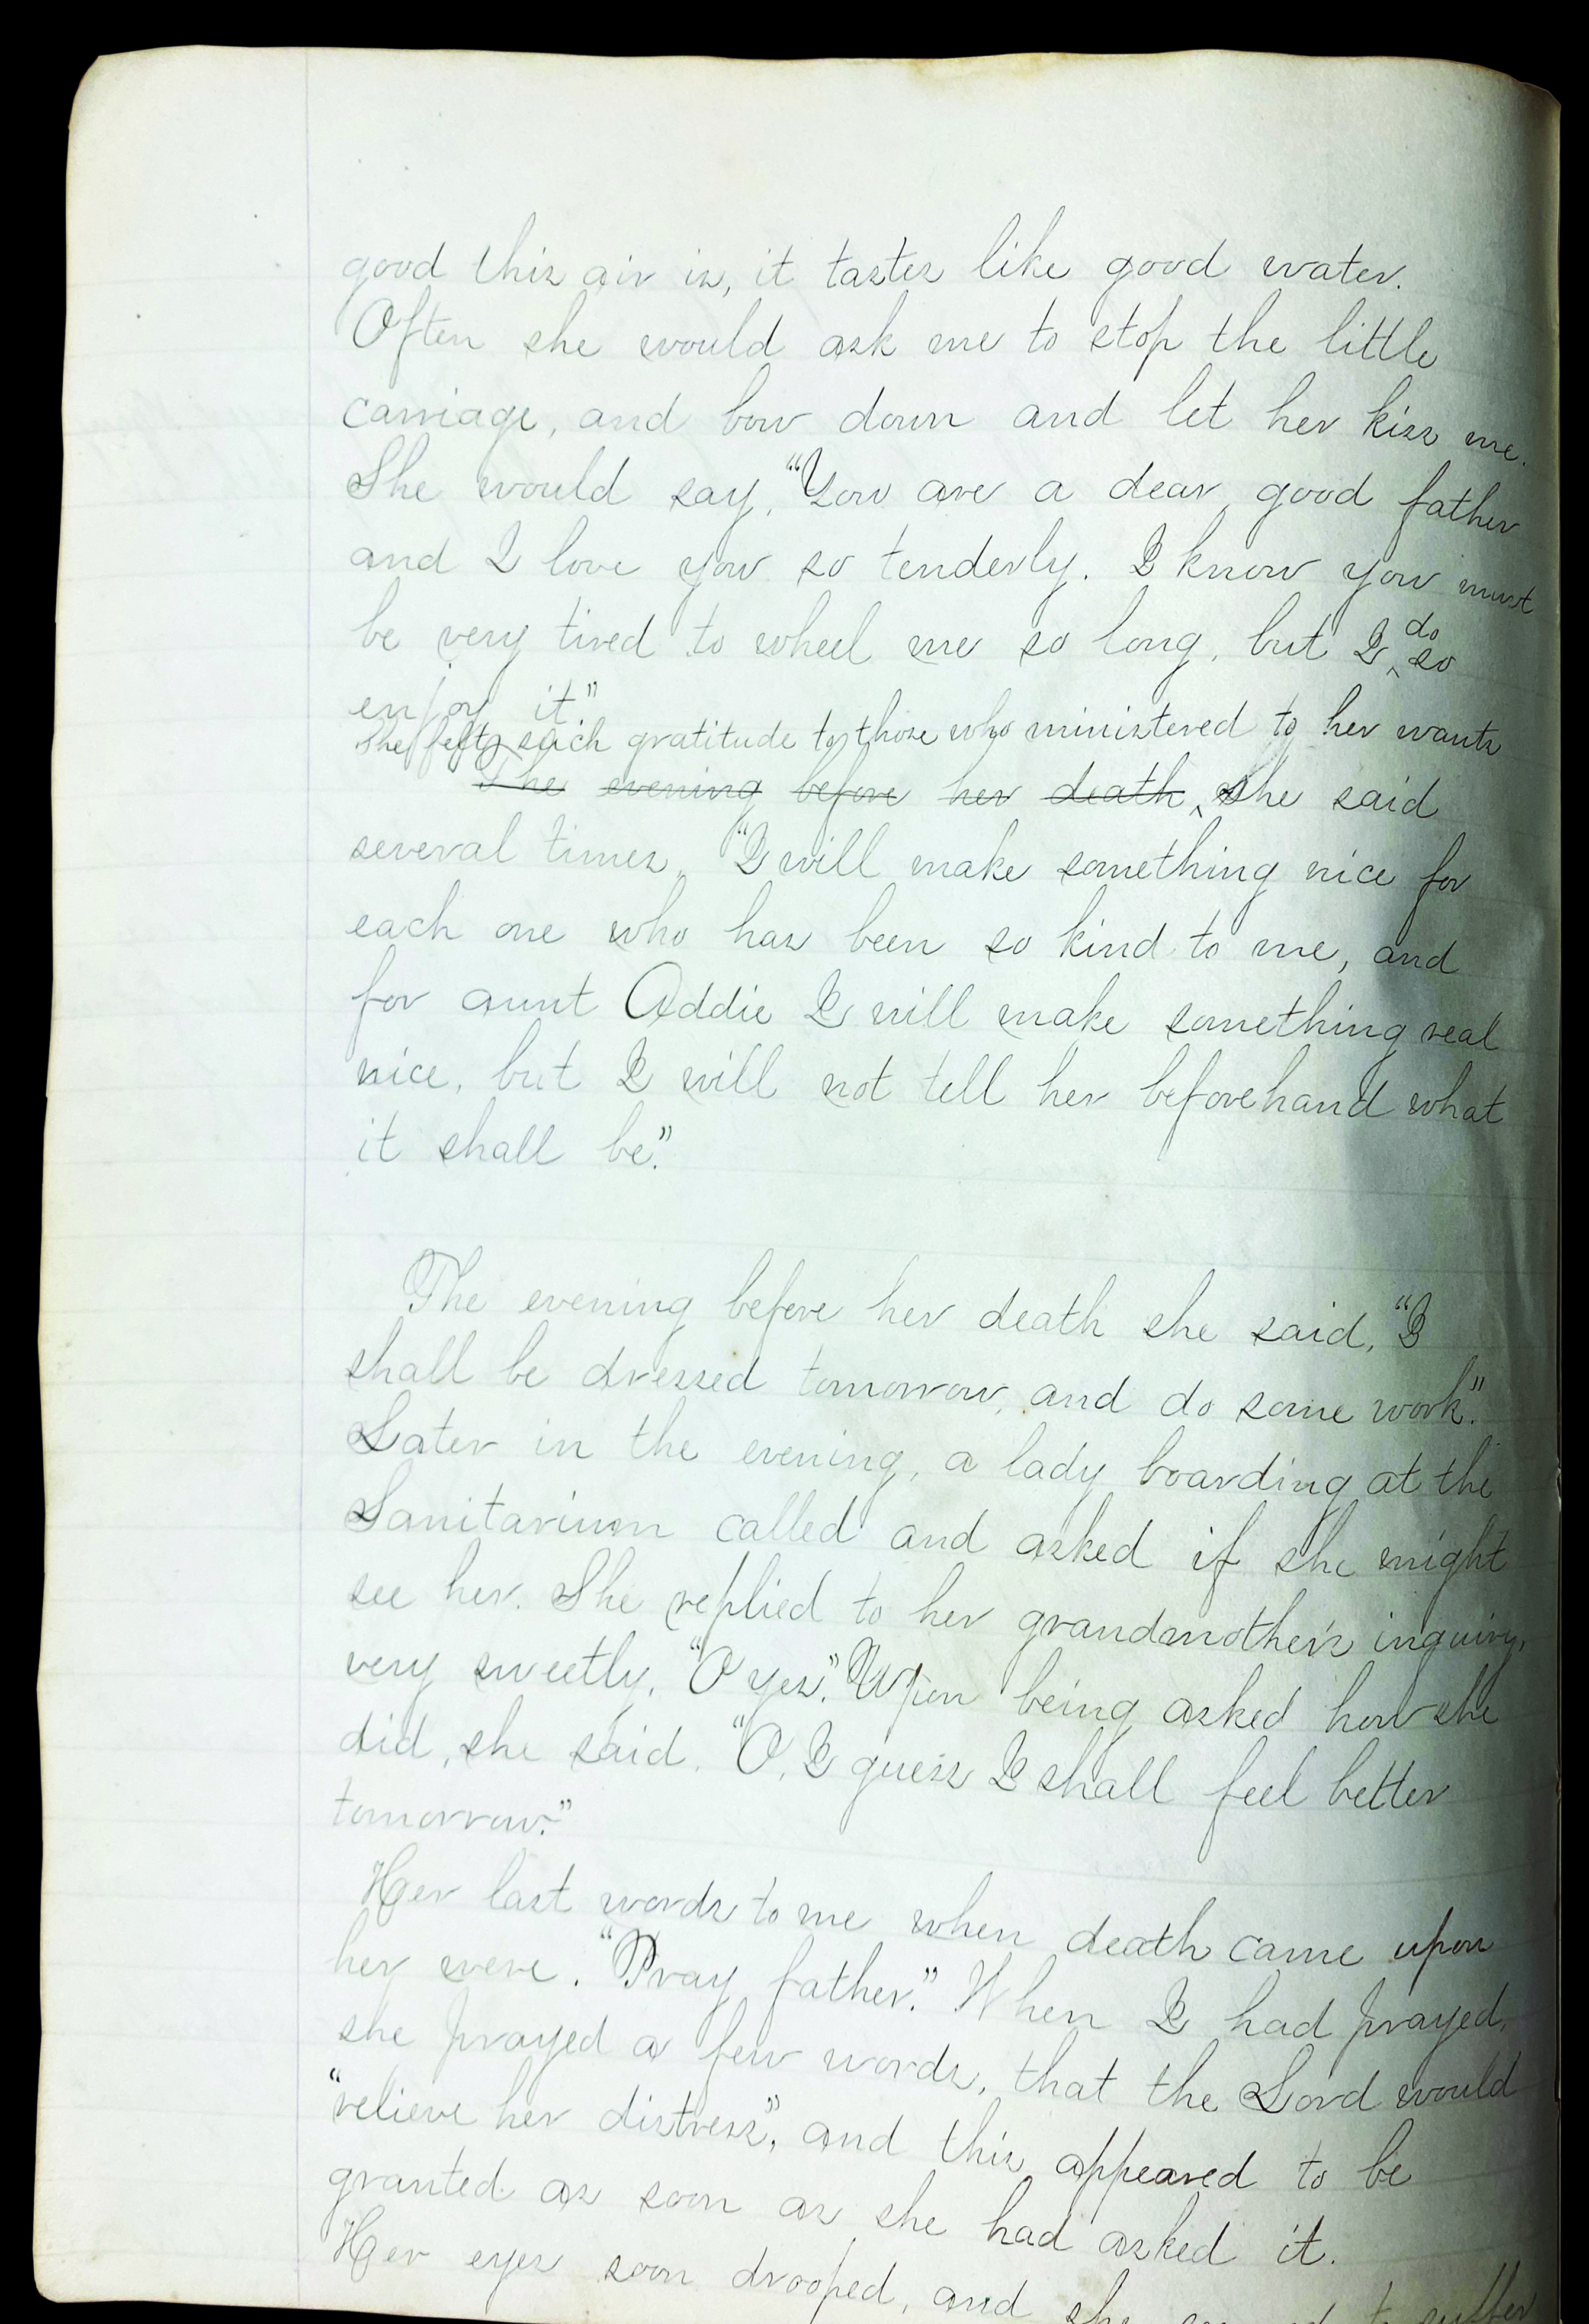 good this air is, it tastes like good water.
Often she would ask me to stop the little
carriage, and bow down and let her kiss me.
She would say, "You are a dear good father
and I love you so tenderly. I know you must
be very tired to wheel me so long, but I do so
enjoy it"
She felt such gratitude to those who ministered to her wants
The evening before her death, she said
several times, "I will make something nice for
each one who has been so kind to me, and
for aunt Addie I will make something real
nice, but I will not tell her beforehand what
it shall be."
The evening before her death she said, "I
shall be dressed tomorrow, and do some work."
Later in the evening, a lady boarding at the
Sanitarium called and asked if she might
see her. She replied to her grandmother's inquiry,
very sweetly, "O yes." Upon being asked how she
did, she said, "O, I guess I shall feel better
tomorrow."
Her last words to me when death came upon
her were, "Pray father." When I had prayed,
she prayed a few words, that the Lord would
"relieve her distress", and this appeared to be
granted as soon as she had asked it.
Her eyes soon drooped, and she to suffer